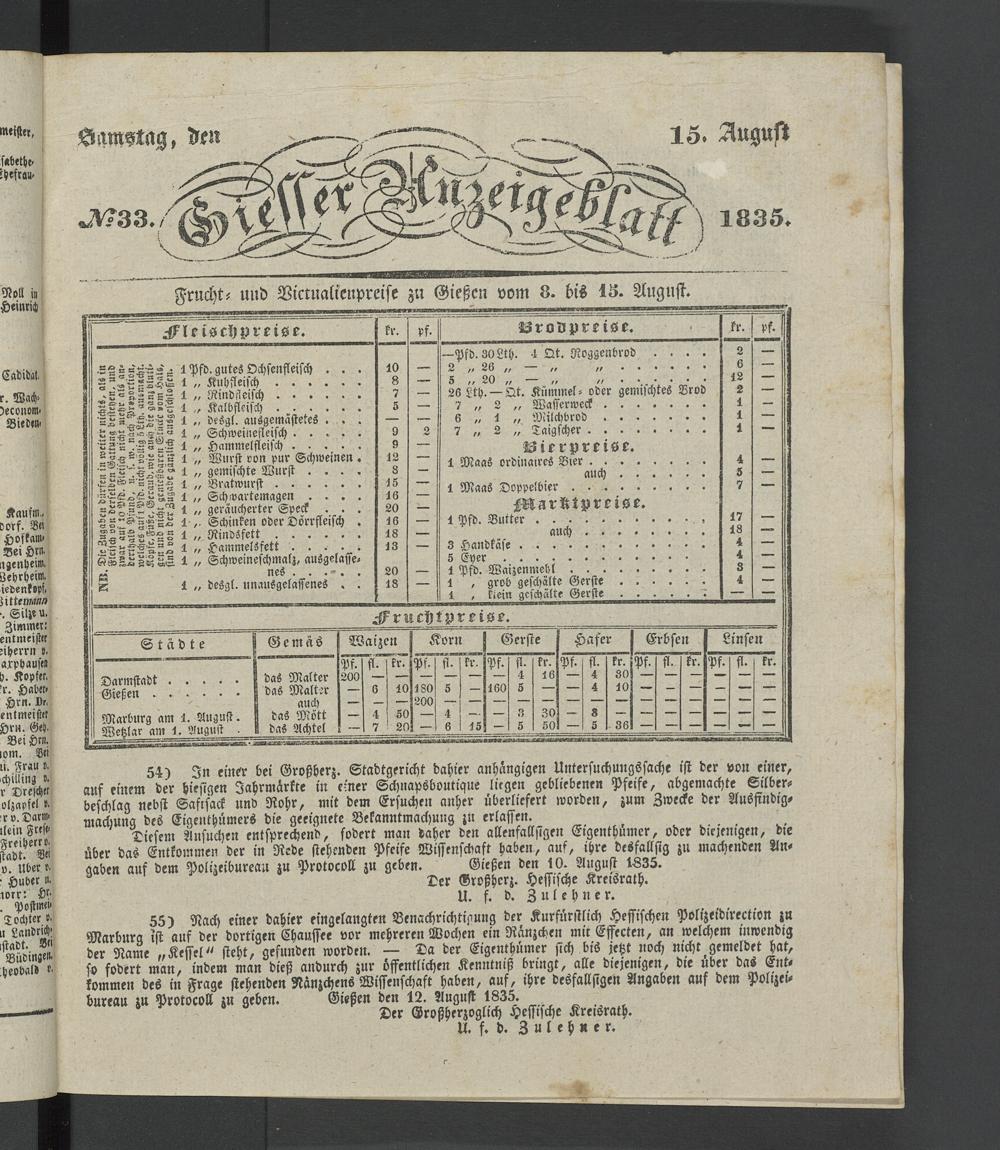 meister,
Ehefrau-
Noll in
Heinrich
Samstag, den 15. August
№ 33. Giesser Anzeigeblatt 1835.
Frucht- und Victualienpreise zu Gießen vom 8. bis 15. August.
Fleischpreise. kr. pf.
NB. Die Zugaben dürfen in weiter nichts, als in
Fleisch von derselben Gattung bestehen, und
zwar auf 10 Pfd. Fleisch nicht mehr als an-
derthalb Pfund, u. s. w. nach Proportion,
welches auf 1 Pfd. nicht völlig 5 Lth. ausmacht.
Köpfe, Füße, Geraud, wie auch die ganz bluti-
gen und nicht genießbaren Stücke vom Hals,
sind von der Zugabe gänzlich ausgeschlossen.
1 Pfd. gutes Ochsenfleisch . . . 10 —
1 „ Kuhfleisch . . . . . 8 —
1 „ Rindfleisch . . . . . 7 —
1 „ Kalbfleisch . . . . . 5 —
1 „ desgl. ausgemästetes . . . — —
1 „ Schweinefleisch . . . . . 9 2
1 „ Hammelfleisch . . . . . 9 —
1 „ Wurst von pur Schweinen . 12 —
1 „ gemischte Wurst . . . . 8 —
1 „ Bratwurst . . . . . 15 —
1 „ Schwartemagen . . . . 16 —
1 „ geräucherter Speck . . . 20 —
1 „ Schinken oder Dörrfleisch . 16 —
1 „ Rindsfett . . . . . 18 —
1 „ Hammelsfett . . . . . 13 —
1 „ Schweineschmalz, ausgelasse-
nes . . . . . 20 —
1 „ desgl. unausgelassenes . . 18 —
Brodpreise. kr. pf.
—Pfd. 30 Lth. 4 Qt. Roggenbrod . . . . 2 —
2 „ 26 „ — „ „ . . . . . . 6 —
5 „ 20 „ — „ „ . . . . . . 12 —
26 Lth. — Qt. Kümmel- oder gemischtes Brod 2 —
7 „ 2 „ Wasserweck . . . . . . 1 —
6 „ 1 „ Milchbrod . . . . . . 1 —
7 „ 2 „ Taigscher . . . . . . 1 —
Bierpreise.
1 Maas ordinaires Bier . . . . . . . 4 —
auch . . . . . 5 —
1 Maas Doppelbier . . . . . . . . 7 —
Marktpreise.
1 Pfd. Butter . . . . . . . . . 17 —
auch . . . . . . . 18 —
3 Handkäse . . . . . . . . . . 4 —
5 Eyer . . . . . . . . . . . 4 —
1 Pfd. Waizenmehl . . . . . . . . 8 —
1 „ grob geschälte Gerste . . . . . . 4 —
1 „ klein geschälte Gerste . . . . . . — —
Fruchtpreise.
Städte Gemäs Waizen Korn Gerste Hafer Erbsen Linsen
Pf. fl. kr. Pf. fl. kr. Pf. fl. kr. Pf. fl. kr. Pf. fl. kr. Pf. fl. kr.
Darmstadt . . . . . das Malter 200 — — — — — — 4 16 — 4 30 — — — — — —
Gießen . . . . . . das Malter — 6 10 180 5 — 160 5 — — 4 10 — — — — — —
auch — — — 200 — — — — — — — — — — — — — —
Marburg am 1. August . das Mött — 4 50 — 4 — — 3 30 — 3 — — — — — — —
Wetzlar am 1. August . das Achtel — 7 20 — 6 15 — 5 50 — 5 36 — — — — — —
54) In einer bei Großherz. Stadtgericht dahier anhängigen Untersuchungssache ist der von einer,
auf einem der hiesigen Jahrmärkte in einer Schnapsboutique liegen gebliebenen Pfeife, abgemachte Silber-
beschlag nebst Saftsack und Rohr, mit dem Ersuchen anher überliefert worden, zum Zwecke der Ausfindig-
machung des Eigenthümers die geeignete Bekanntmachung zu erlassen.
Diesem Ansuchen entsprechend, fodert man daher den allenfallsigen Eigenthümer, oder diejenigen, die
über das Entkommen der in Rede stehenden Pfeife Wissenschaft haben, auf, ihre desfallsig zu machenden An-
gaben auf dem Polizeibureau zu Protocoll zu geben. Gießen den 10. August 1835.
Der Großherz. Hessische Kreisrath.
U. f. d. Zulehner.
55) Nach einer dahier eingelangten Benachrichtigung der Kurfürstlich Hessischen Polizeidirection zu
Marburg ist auf der dortigen Chaussee vor mehreren Wochen ein Ränzchen mit Effecten, an welchem inwendig
der Name „Kessel“ steht, gefunden worden. — Da der Eigenthümer sich bis jetzt noch nicht gemeldet hat,
so fodert man, indem man dieß andurch zur öffentlichen Kenntniß bringt, alle diejenigen, die über das Ent-
kommen des in Frage stehenden Ränzchens Wissenschaft haben, auf, ihre desfallsigen Angaben auf dem Polizei-
bureau zu Protocoll zu geben. Gießen den 12. August 1835.
Der Großherzoglich Hessische Kreisrath.
U. f. d. Zulehner.